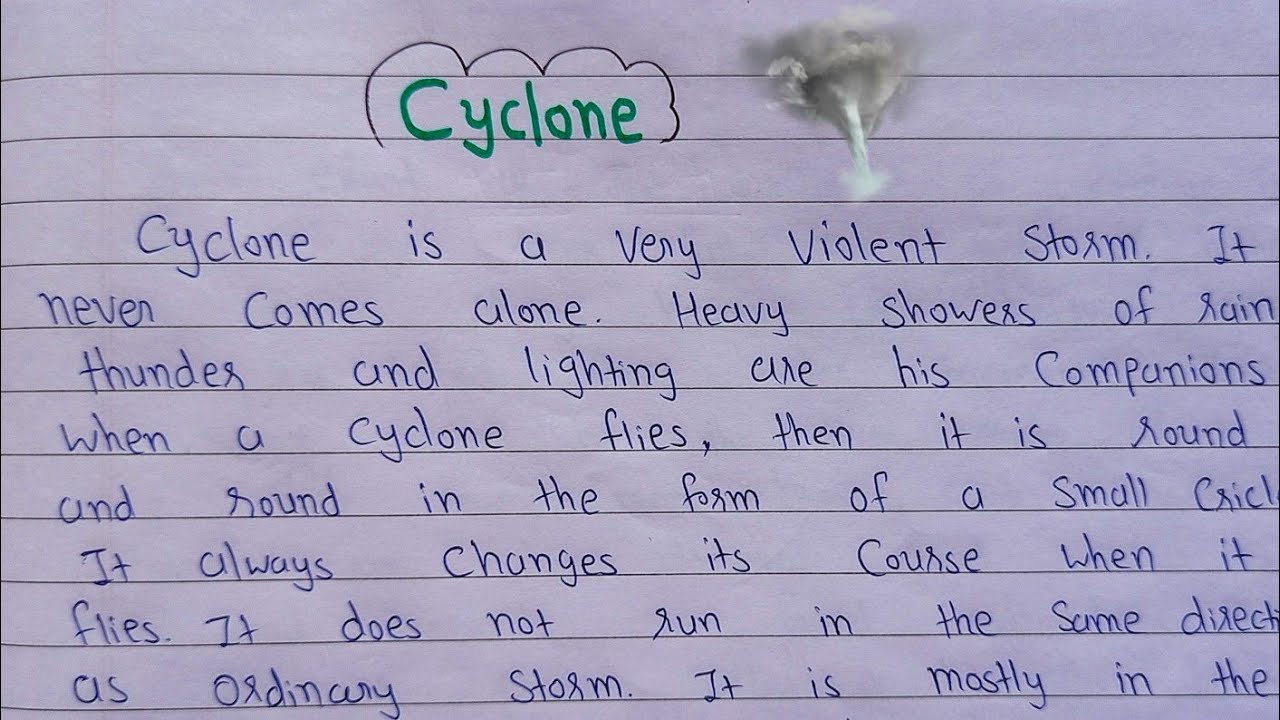 Cyclone
Cyclone is a very violent storm. It
never comes alone. Heavy showers of rain
thunder and lighting are his companions
when a cyclone flies, then it is round
and round in the form of a small cricl
It always changes its course when it
flies. It does not run in the same direct
as ordinary storm. It is mostly in the